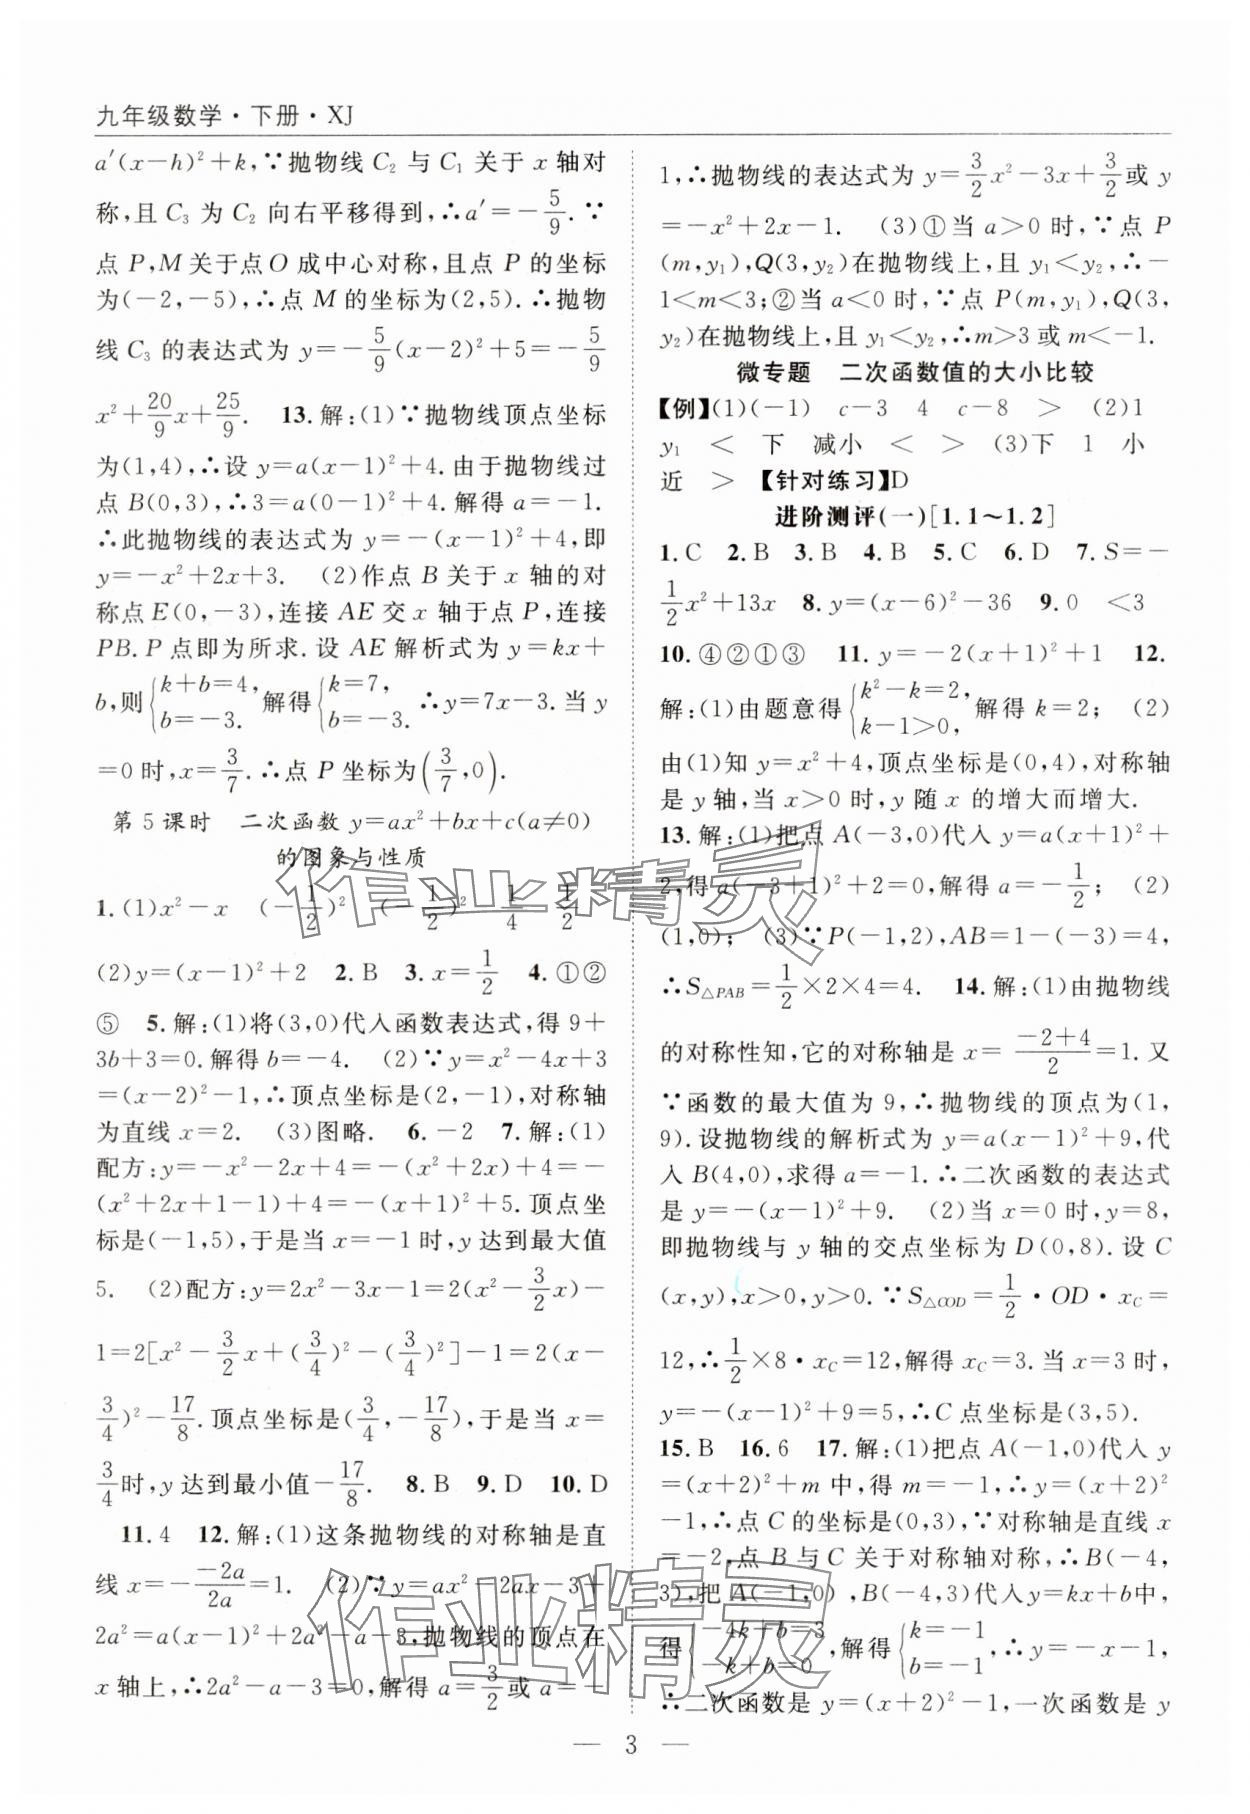 九年级数学·下册·XJ
a′(x－h)²＋k,∵抛物线 C₂ 与 C₁ 关于 x 轴对
称,且 C₃ 为 C₂ 向右平移得到,∴a′＝－5/9.∵
点 P,M 关于点 O 成中心对称,且点 P 的坐标
为(－2,－5),∴点 M 的坐标为(2,5).∴抛物
线 C₃ 的表达式为 y＝－5/9(x－2)²＋5＝－5/9
x²＋20/9x＋25/9. 13.解:(1)∵抛物线顶点坐标
为(1,4),∴设 y＝a(x－1)²＋4.由于抛物线过
点 B(0,3),∴3＝a(0－1)²＋4.解得 a＝－1.
∴此抛物线的表达式为 y＝－(x－1)²＋4,即
y＝－x²＋2x＋3. (2)作点 B 关于 x 轴的对
称点 E(0,－3),连接 AE 交 x 轴于点 P,连接
PB.P 点即为所求.设 AE 解析式为 y＝kx＋
b,则{k＋b＝4, b＝－3. 解得{k＝7, b＝－3. ∴y＝7x－3.当 y
＝0 时,x＝3/7.∴点 P 坐标为(3/7,0).
第 5 课时 二次函数 y＝ax²＋bx＋c(a≠0)
的图象与性质
1.(1)x²－x (－1/2)² (－1/2)² 1/4 1/2
(2)y＝(x－1)²＋2 2.B 3.x＝1/2 4.①②
⑤ 5.解:(1)将(3,0)代入函数表达式,得 9＋
3b＋3＝0.解得 b＝－4. (2)∵y＝x²－4x＋3
＝(x－2)²－1,∴顶点坐标是(2,－1),对称轴
为直线 x＝2. (3)图略. 6.－2 7.解:(1)
配方:y＝－x²－2x＋4＝－(x²＋2x)＋4＝－
(x²＋2x＋1－1)＋4＝－(x＋1)²＋5.顶点坐
标是(－1,5),于是当 x＝－1 时,y 达到最大值
5. (2)配方:y＝2x²－3x－1＝2(x²－3/2x)－
1＝2[x²－3/2x＋(3/4)²－(3/4)²]－1＝2(x－
3/4)²－17/8.顶点坐标是(3/4,－17/8),于是当 x＝
3/4时,y 达到最小值－17/8. 8.B 9.D 10.D
11.4 12.解:(1)这条抛物线的对称轴是直
线 x＝－－2a/2a＝1. (2)∵y＝ax²－2ax－3＋
2a²＝a(x－1)²＋2a²－a－3,抛物线的顶点在
x 轴上,∴2a²－a－3＝0,解得 a＝3/2或 a＝－
1,∴抛物线的表达式为 y＝3/2x²－3x＋3/2或 y
＝－x²＋2x－1. (3)①当 a＞0 时,∵点 P
(m,y₁),Q(3,y₂)在抛物线上,且 y₁＜y₂,∴－
1＜m＜3;②当 a＜0 时,∵点 P(m,y₁),Q(3,
y₂)在抛物线上,且 y₁＜y₂,∴m＞3 或 m＜－1.
微专题 二次函数值的大小比较
【例】(1)(－1) c－3 4 c－8 ＞ (2)1
y₁ ＜ 下 减小 ＜ ＞ (3)下 1 小
近 ＞ 【针对练习】D
进阶测评(一)[1.1～1.2]
1.C 2.B 3.B 4.B 5.C 6.D 7.S＝－
1/2x²＋13x 8.y＝(x－6)²－36 9.0 ＜3
10.④②①③ 11.y＝－2(x＋1)²＋1 12.
解:(1)由题意得{k²－k＝2, k－1＞0, 解得 k＝2; (2)
由(1)知 y＝x²＋4,顶点坐标是(0,4),对称轴
是 y 轴,当 x＞0 时,y 随 x 的增大而增大.
13.解:(1)把点 A(－3,0)代入 y＝a(x＋1)²＋
2,得 a(－3＋1)²＋2＝0,解得 a＝－1/2; (2)
(1,0); (3)∵P(－1,2),AB＝1－(－3)＝4,
∴S△PAB＝1/2×2×4＝4. 14.解:(1)由抛物线
的对称性知,它的对称轴是 x＝－2＋4/2＝1.又
∵函数的最大值为 9,∴抛物线的顶点为(1,
9).设抛物线的解析式为 y＝a(x－1)²＋9,代
入 B(4,0),求得 a＝－1.∴二次函数的表达式
是 y＝－(x－1)²＋9. (2)当 x＝0 时,y＝8,
即抛物线与 y 轴的交点坐标为 D(0,8).设 C
(x,y),x＞0,y＞0.∵S△COD＝1/2·OD·xC＝
12,∴1/2×8·xC＝12,解得 xC＝3.当 x＝3 时,
y＝－(x－1)²＋9＝5,∴C 点坐标是(3,5).
15.B 16.6 17.解:(1)把点 A(－1,0)代入 y
＝(x＋2)²＋m 中,得 m＝－1,∴y＝(x＋2)²
－1,∴点 C 的坐标是(0,3),∵对称轴是直线 x
＝－2,点 B 与 C 关于对称轴对称,∴B(－4,
3),把 A(－1,0),B(－4,3)代入y＝kx＋b中,
得{－4k＋b＝3 －k＋b＝0 ,解得{k＝－1 b＝－1 ,∴y＝－x－1,
∴二次函数是 y＝(x＋2)²－1,一次函数是 y
— 3 —
作业精灵
作业精灵